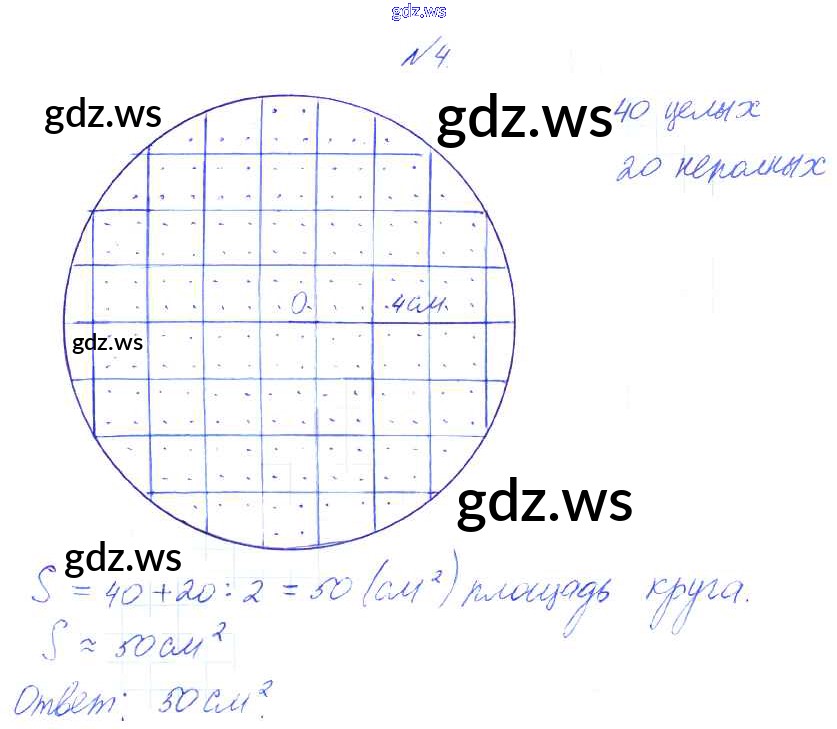 gdz.ws
№4.
gdz.ws
gdz.ws
40 целых
20 неполных
О.
4см.
gdz.ws
gdz.ws
gdz.ws
S = 40 + 20 : 2 = 50 (см²) площадь круга.
S ≈ 50 см²
Ответ: 50 см².